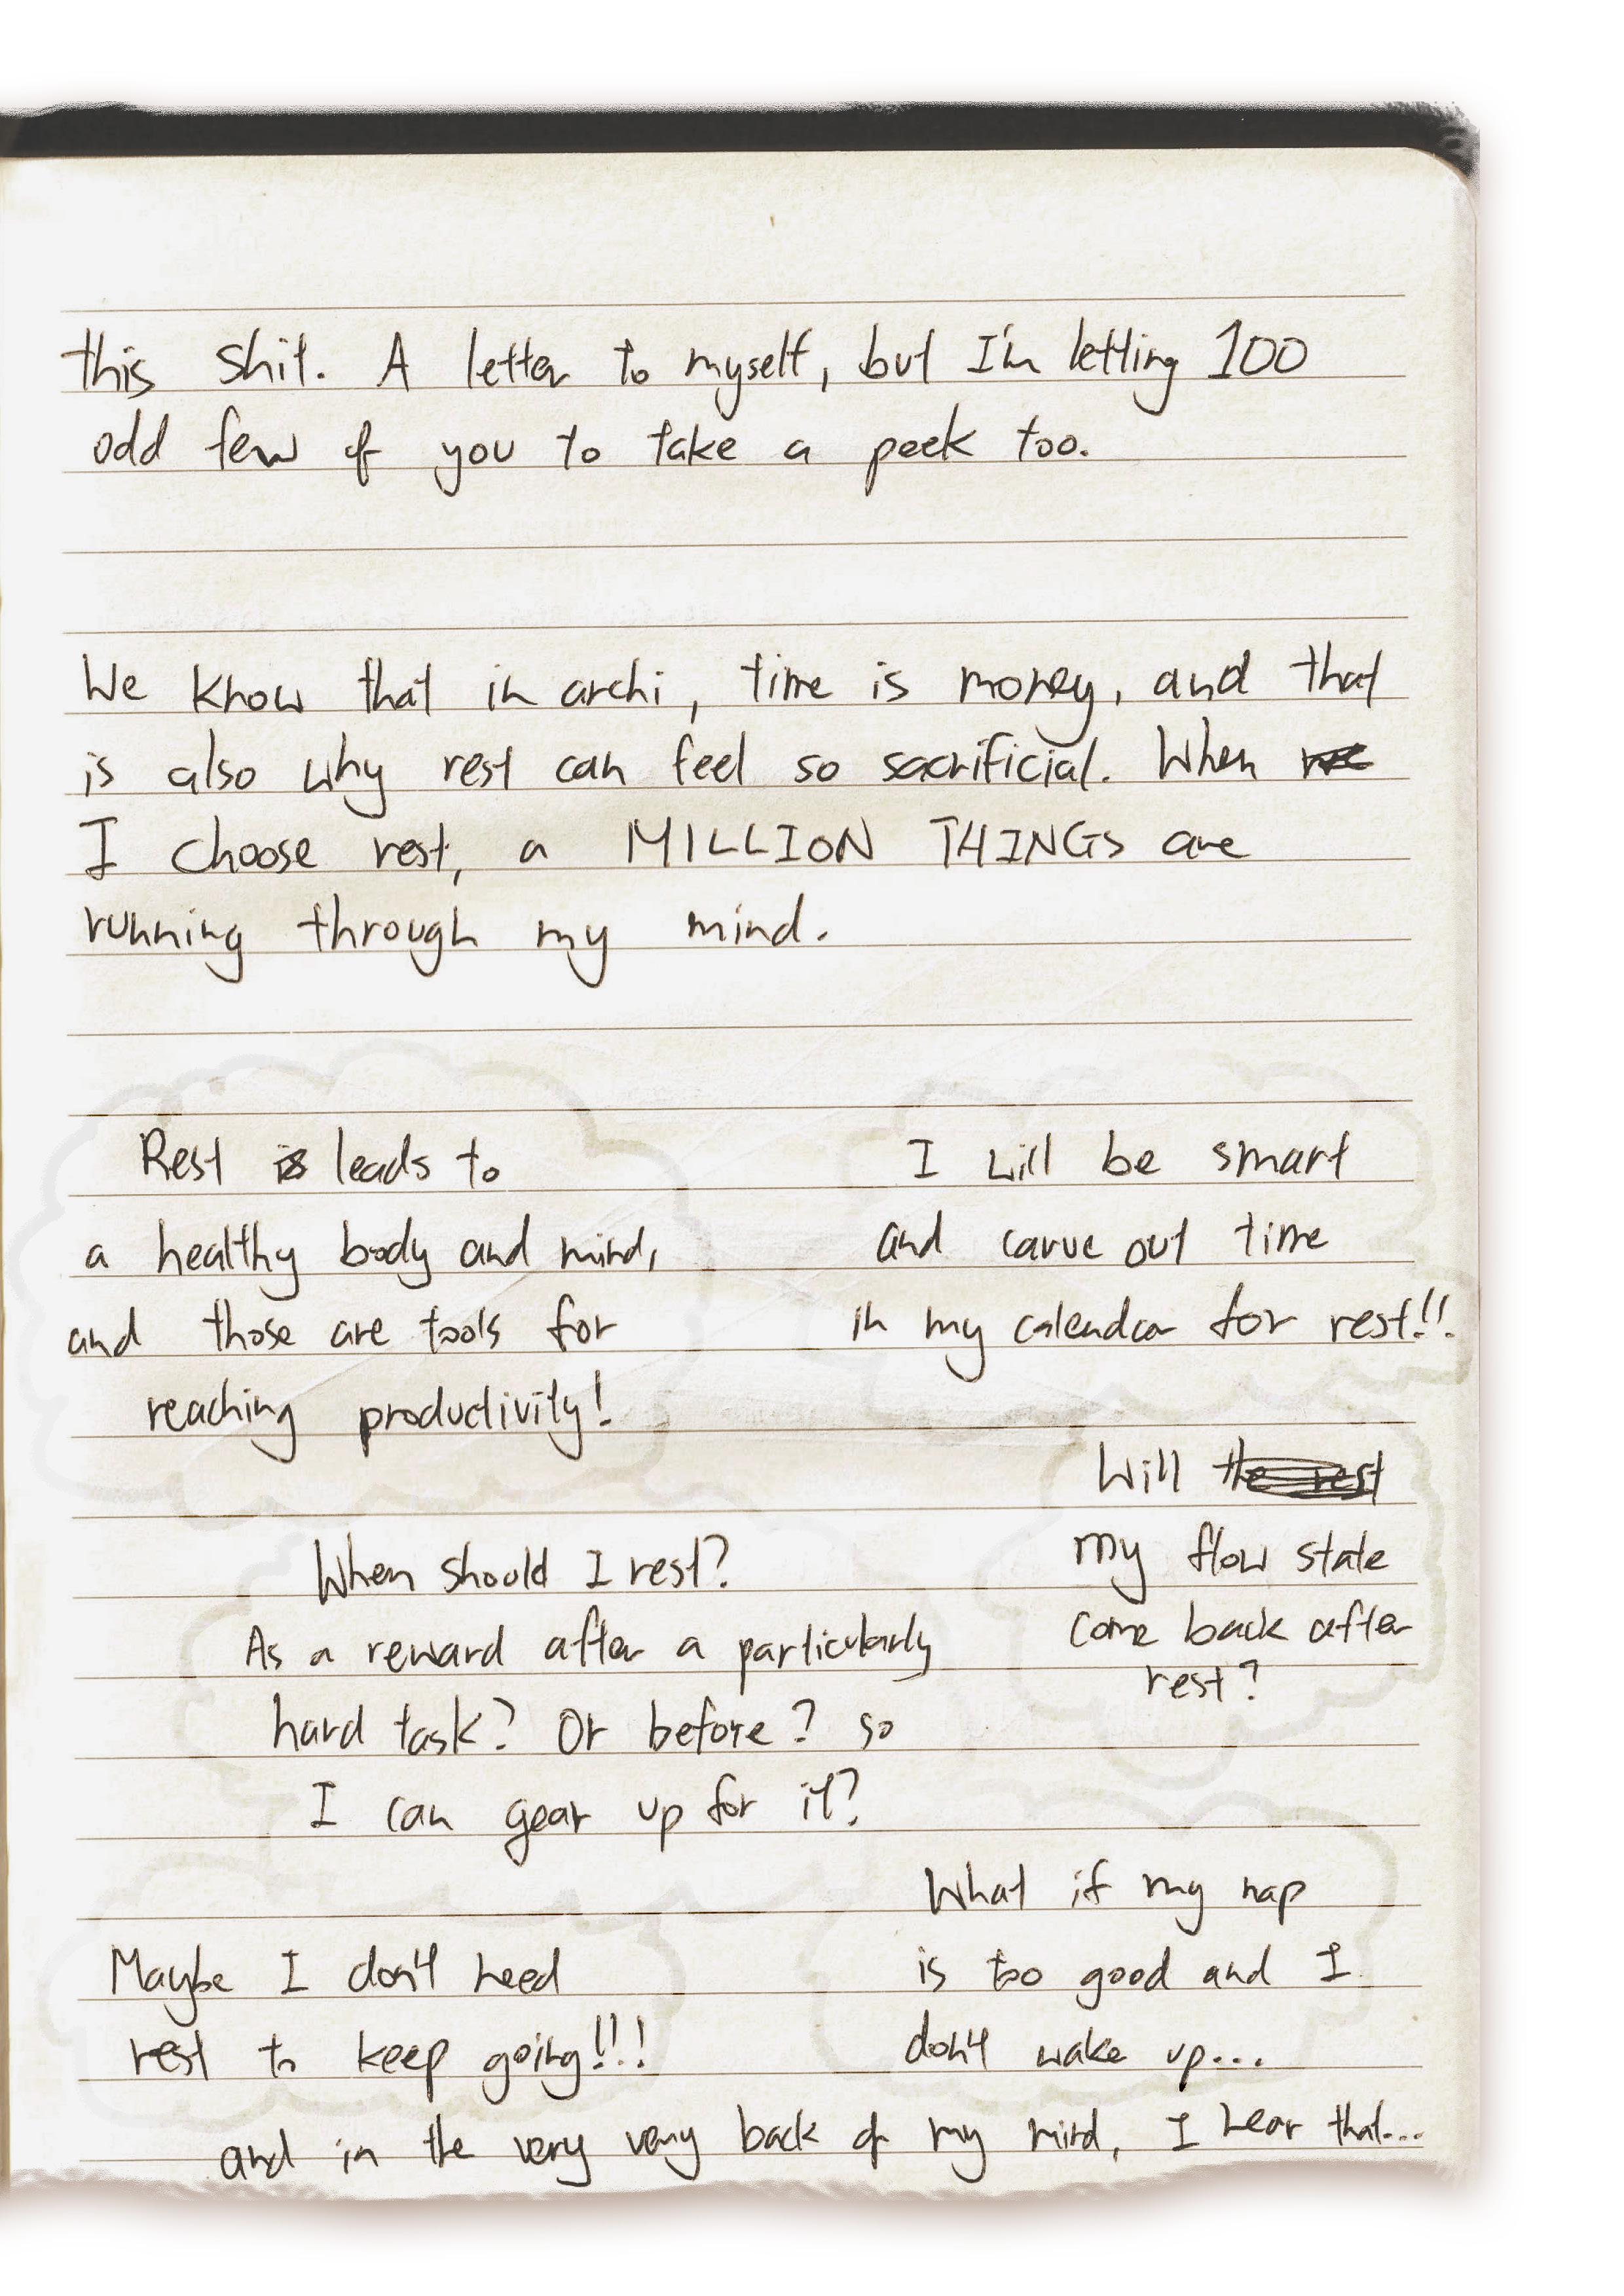 this shit. A letter to myself, but I'm letting 100
odd few of you to take a peek too.
We know that in archi, time is money, and that
is also why rest can feel so sacrificial. When
I choose rest, a MILLION THINGS are
running through my mind.
Rest leads to
a healthy body and mind,
and those are tools for
reaching productivity!
I will be smart
and carve out time
in my calendar for rest!!
Will the rest
my flow state
come back after
rest?
When should I rest?
As a reward after a particularly
hard task? Or before? so
I can gear up for it?
What if my nap
is too good and I
don't wake up...
Maybe I don't need
rest to keep going!!!
and in the very very back of my mind, I hear that...